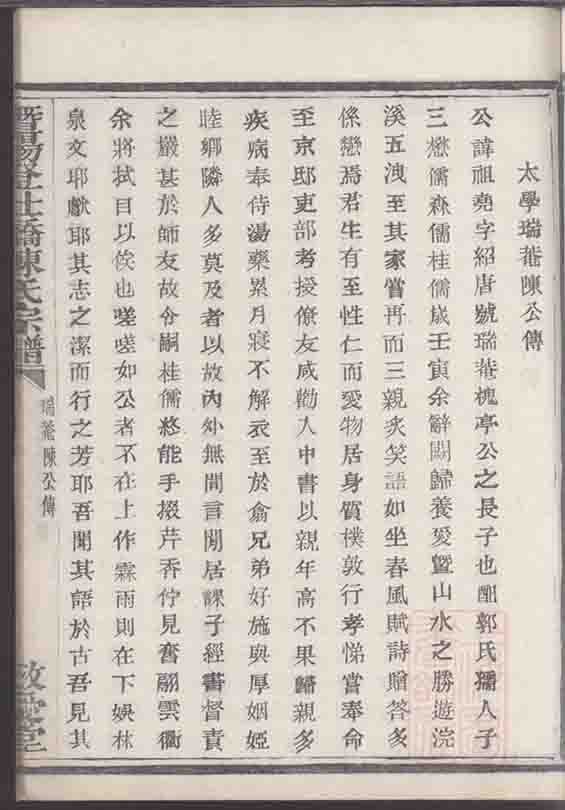 太學瑞菴陳公傳
公諱祖堯字紹唐號瑞菴槐亭公之長子也配郭氏孺人子
三懋儒森儒桂儒歲壬寅余辭闕歸養愛暨山水之勝遊浣
溪五洩至其家嘗再而三親炙笑語如坐春風賦詩贈答多
係戀焉君生有至性仁而愛物居身質樸敦行孝悌嘗奉命
至京邸吏部考授僚友咸勸入中書以親年高不果歸親多
疾病奉侍湯藥累月寢不解衣至於翕兄弟好施與厚姻婭
睦鄉隣人多莫及者以故內外無間言閒居課子經書督責
之嚴甚於師友故令嗣桂儒終能手掇芹香佇見奮翮雲衢
余將拭目以俟也嗟嗟如公者不在上作霖雨則在下娛林
泉文耶獻耶其志之潔而行之芳耶吾聞其語於古吾見其
暨陽登仕橋陳氏宗譜
瑞菴陳公傳